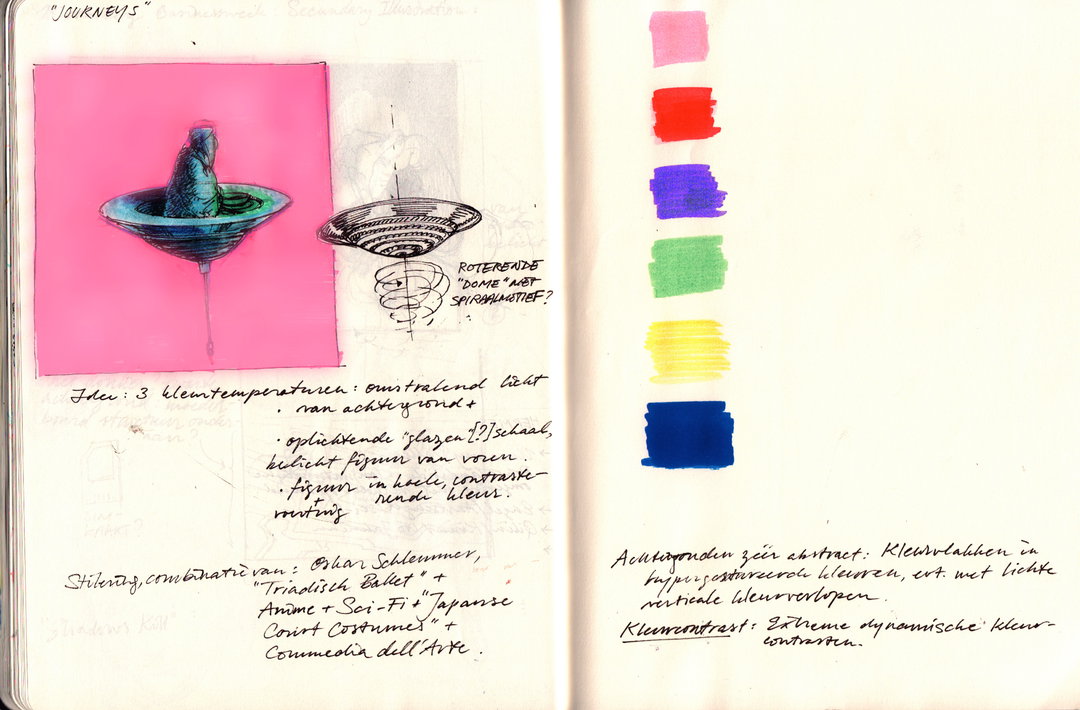 "JOURNEYS"
Businessweek: Secondary Illustration:
ROTERENDE
"DOME" MET
SPIRAALMOTIEF?
Idee: 3 kleurtemperaturen: omstralend licht
· van achtergrond +
· oplichtende "glazen" [?] schaal,
belicht figuur van voren.
· figuur in koele, contraste-
rende kleur.
Stilering, combinatie van: Oskar Schlemmer,
"Triadisch Ballet" +
Anime + Sci-Fi + "Japanse
Court Costumes" +
Commedia dell'Arte.
Achtergronden zéér abstract: Kleurvlakken in
kleuren, evt. met lichte
verticale kleurverlopen.
Kleurcontrast: Extreme dynamische kleur-
contrasten.